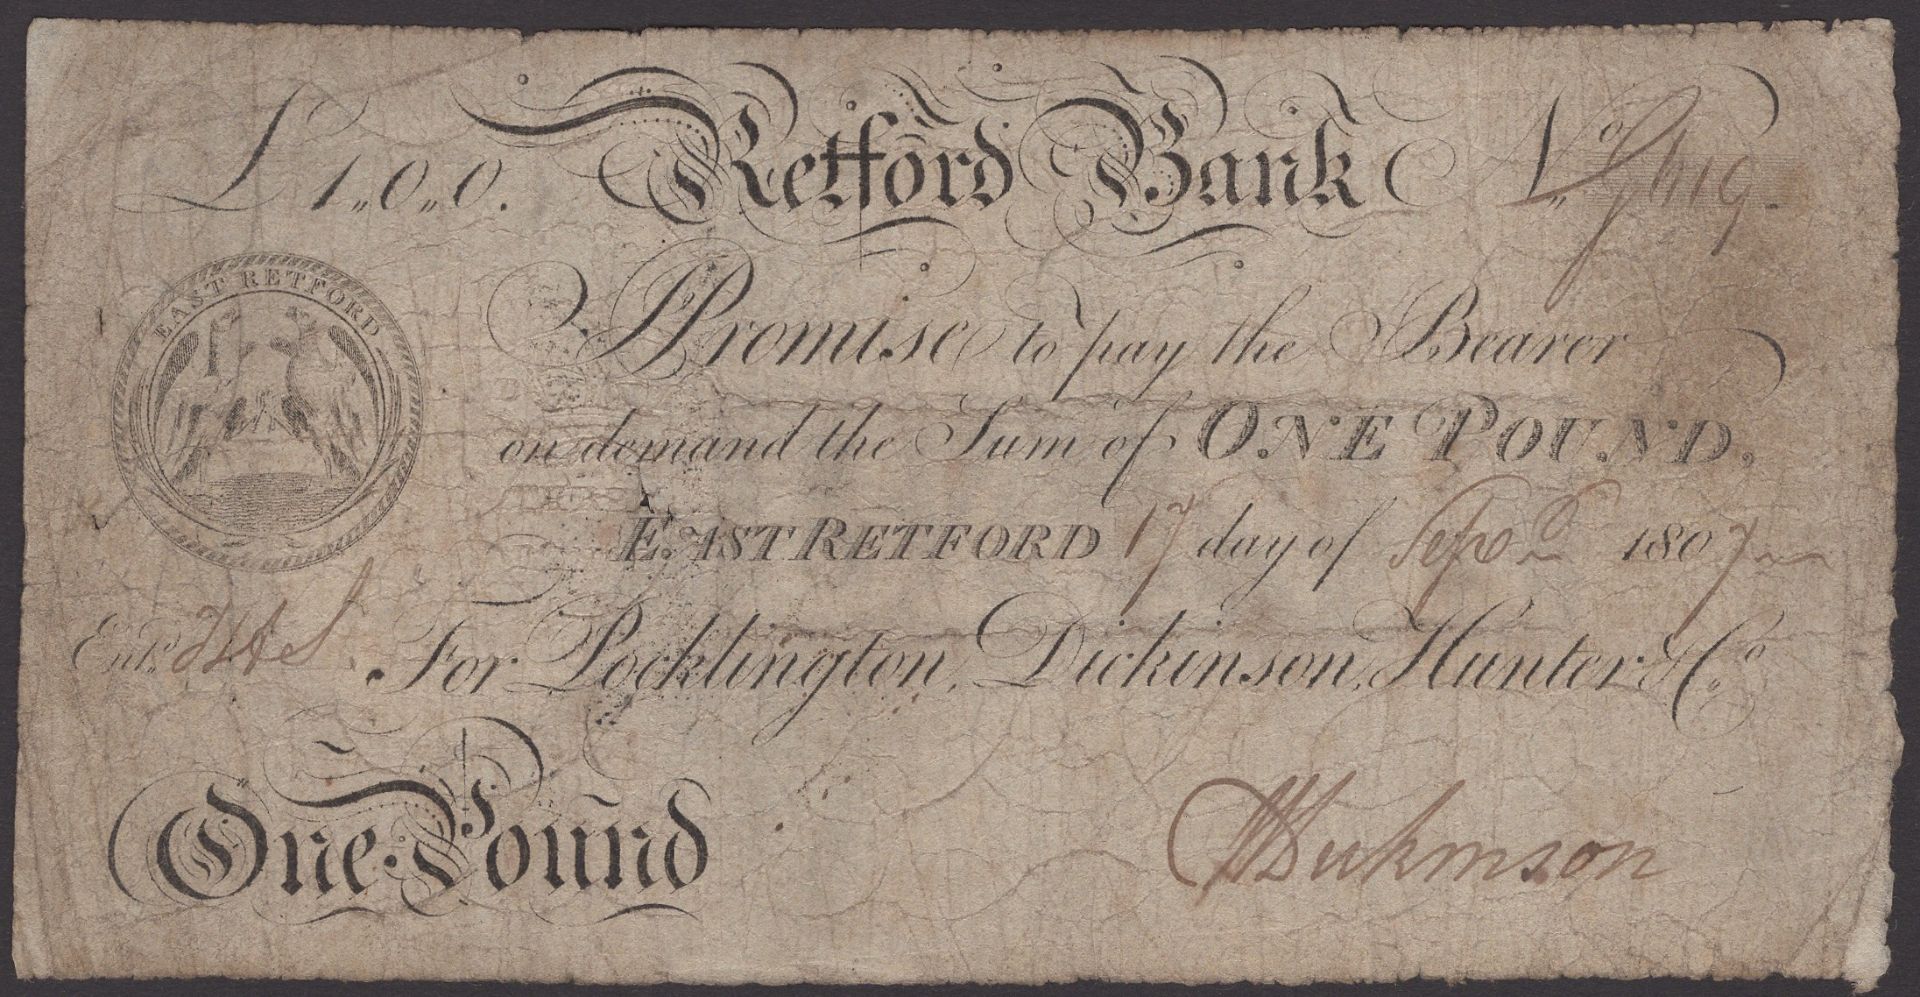 £1,,0,,0. Retford Bank No
EAST RETFORD
I Promise to pay the Bearer
on demand the Sum of ONE POUND.
EAST RETFORD 17 day of Sepr 1807
Entd For Pocklington, Dickinson, Hunter & Co
One Pound
Dickinson